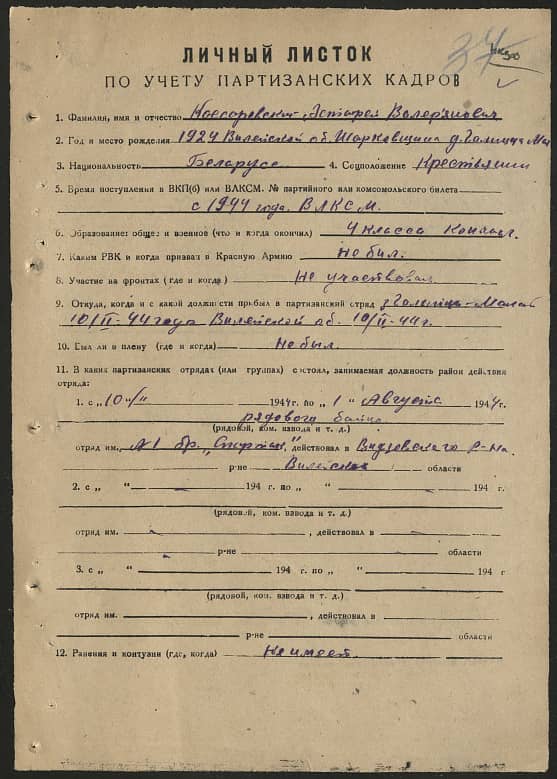 ЛИЧНЫЙ ЛИСТОК
ПО УЧЕТУ ПАРТИЗАНСКИХ КАДРОВ
1. Фамилия, имя и отчество Валерьянович
2. Год и место рождения 1924 Вилейской об. Шарковщина д. Галица Мал
3. Национальность Беларусс 4. Соцположение Крестьянин
5. Время поступления в ВКП(б) или ВЛКСМ. № партийного или комсомольского билета
с 1944 года. ВЛКСМ.
6. Образование: общее и военное (что и когда окончил) 4 класса
7. Каким РВК и когда призван в Красную Армию Не был.
8. Участие на фронтах (где и когда) Не участвовал
9. Откуда, когда и с какой должности прибыл в партизанский отряд
10/II-44 года Вилейской об. 10/II-44г.
10. Был ли в плену (где и когда) Не был.
11. В каких партизанских отрядах (или группах) состоял, занимаемая должность район действия
отряда:
1. с „10 1944 г. по „1" Августа 1944г.
рядового
(рядовой, ком. взвода и т. д.)
отряд им. №1 бр. „Спартак", действовал в Видзевского р-на
р-не Вилейской области
2. с „ " 194 г. по „ " 194 г.
(рядовой, ком. взвода и т. д.)
отряд им. , действовал в
р-не области
3. с „ " 194 г. по „ " 194 г
(рядовой, ком. взвода и т. д.)
отряд им. , действовал в
р-не области
12. Ранения и контузии (где, когда) Не имеет.